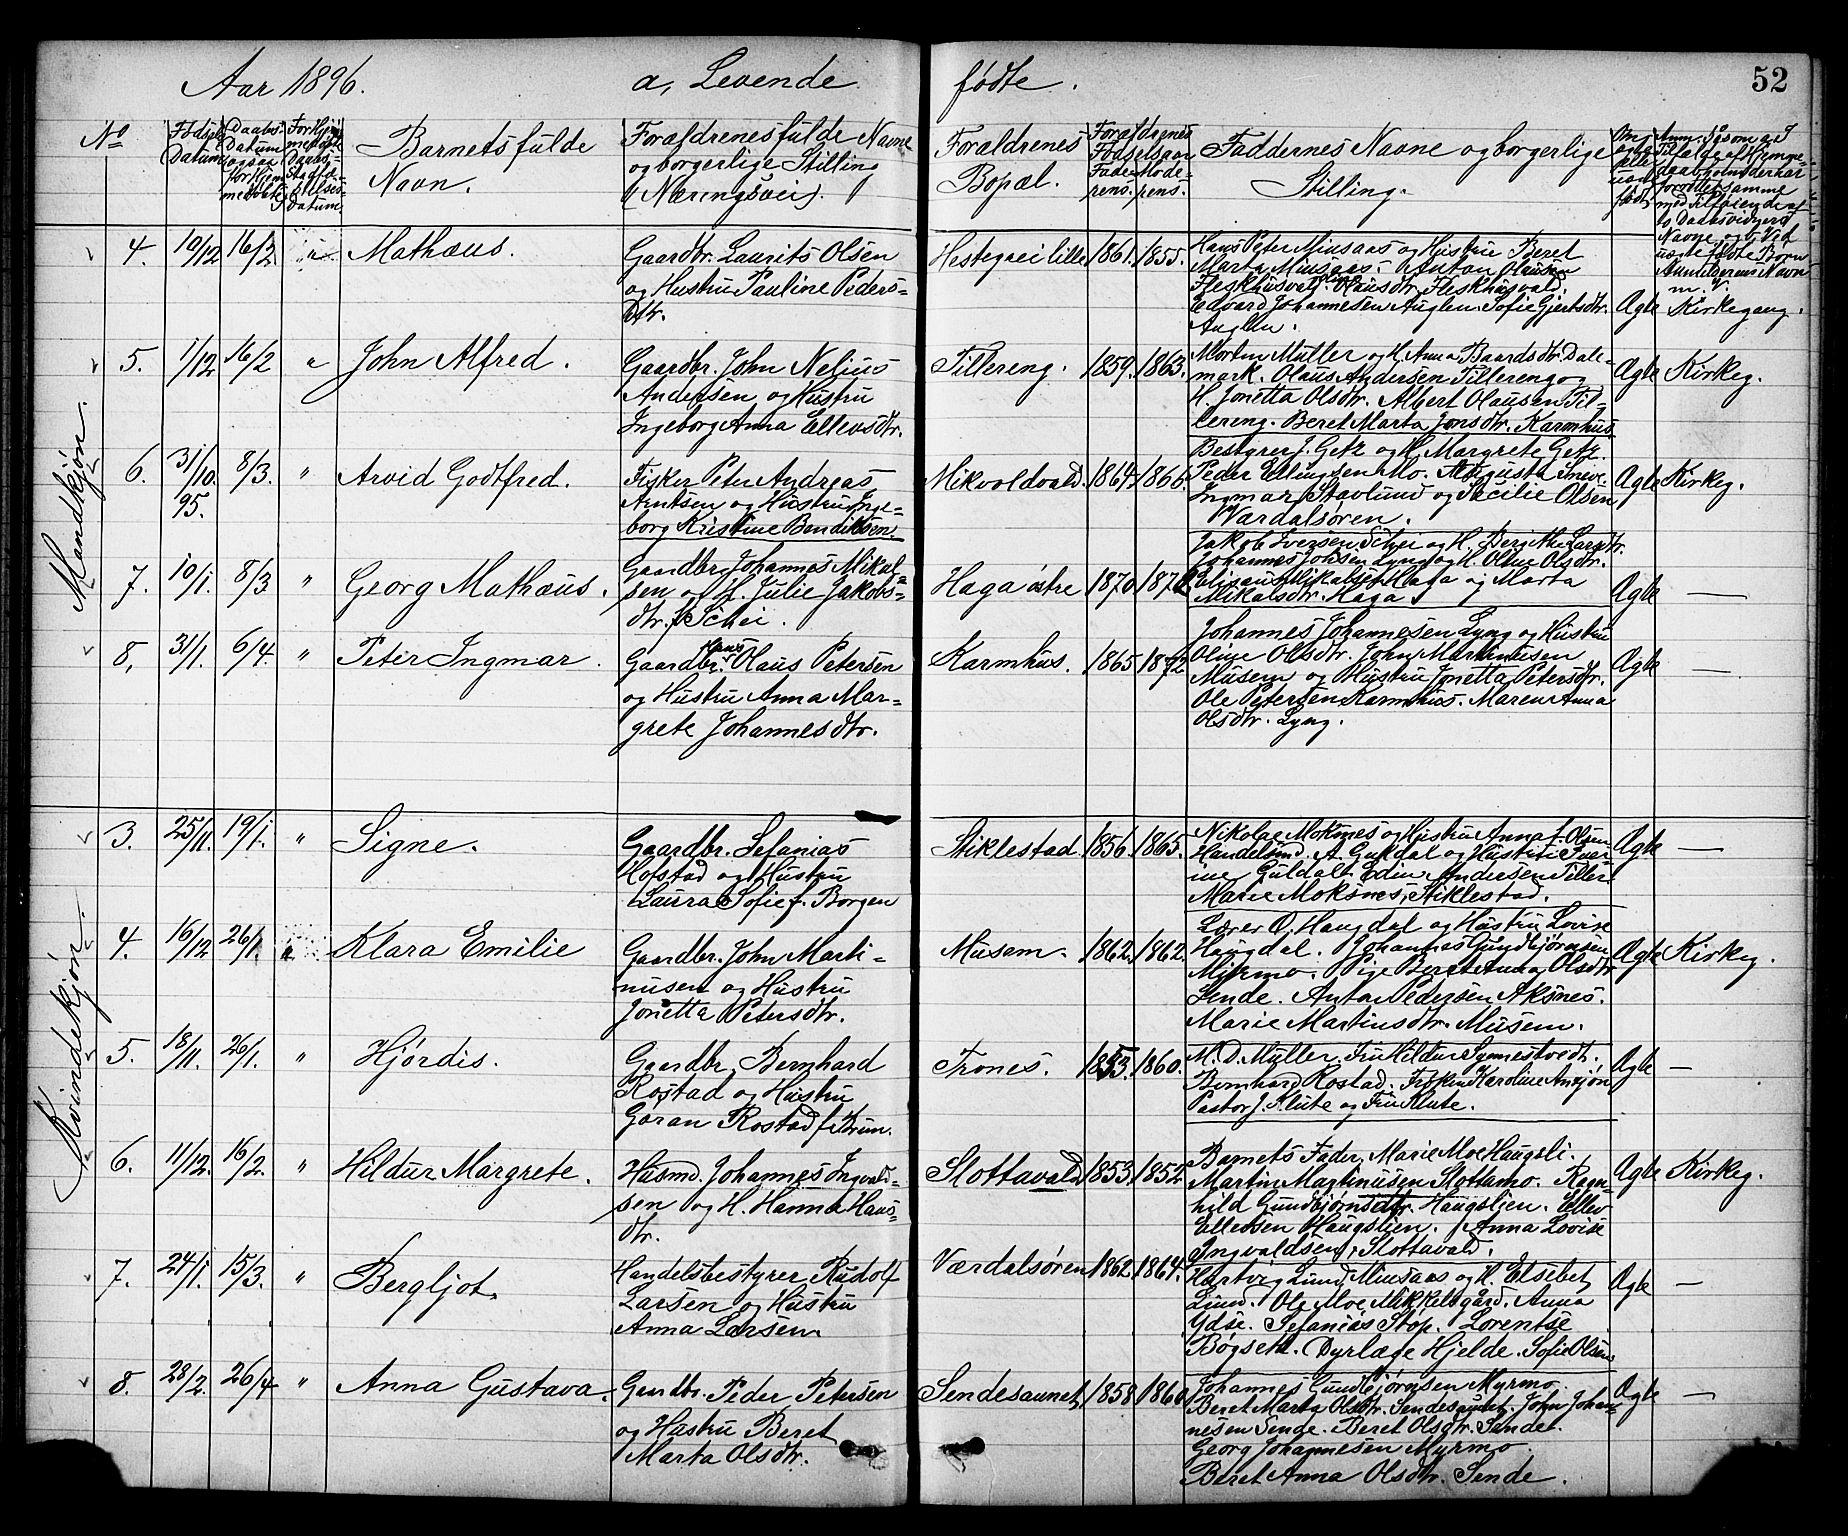 Aar 1896. a, Levende fødte. 52
No Fødsels Datum Daabs- Datum Barnets fulde Navn. Forældrenes fulde Navne og borgerlige Stilling (Næringsvei). Forældrenes Bopæl. Forældrenes Fødselsaar Faderens. Moderens. Faddernes Navne og borgerlige Stilling.
Mandkjøn.
4. 19/12 16/2 " Mathæus. Gaardbr. Laurits Olsen
og Hustru Pauline Peders-
Dtr.
Hestegrei lille 1861. 1855. Hans Peter Minsaas og Hustru Beret
Marta Minsaas. Anton Olausen
Fleskhusvald. Hausdtr. Fleskhusvald.
Edvard Johannesen Auglen. Sofie Gjertsdtr.
Auglen.
Ægte Kirkegang.
5. 1/12 16/2 " John Alfred. Gaardbr. John Nelius
Andersen og Hustru
Ingeborg Anna Ellevsdtr.
Tillereng. 1859. 1863. Morten Müller og H. Anna Baardsdtr. Dale-
mark. Olaus Andersen Tillereng og
H. Jonetta Olsdtr. Albert Olausen Til-
lereng. Beret Marta Jonsdtr. Karmhus.
Ægte Kirkeg.
6. 31/10 95. 8/3. " Arvid Godtfred. Fisker Peter Andreas
Arntsen og Hustru Inge-
borg Kristine Bendiksen.
Mikvoldvald. 1864. 1866. Bestyrer J. Getz og H. Margrete Getz.
Peder Ellingsen Mo. Augusta
Ingmar Stavlund og Secilie Olsen
Værdalsøren.
Ægte Kirkeg.
7. 10/1. 8/3 " Georg Mathæus. Gaardbr. Johannes Mikal-
sen og H. Julie Jakobs-
dtr. f. Schei.
Haga østre 1870 Jakob Iversen Schei og H. Berithe Larsdtr.
Johannes Johsen Lyng og H. Oline Olsdtr.
Elisæus Mikalsen Haga og Marta
Mikalsdtr. Haga
Ægte —
8. 31/1. 6/4. " Peter Ingmar. Gaardbr. Hans Olaus Petersen
og Hustru Anna Mar-
grete Johannesdtr.
Karmhus. 1865 1872. Johannes Johannesen Lyng og Hustru
Oline Olsdtr. John Martinusen
Musem og Hustru Jonetta Petersdtr.
Ole Petersen Karmhus. Maren Anna
Olsdtr. Lyng.
Ægte —
Kvindekjøn.
3. 25/11. 19/1. " Signe. Gaardbr. Sefanias
Hofstad og Hustru
Laura Sofie f. Borgen
Stiklestad. 1856. 1865. Nikolae Moksnes og Hustru Anna f. Olsen
Handelsmd. A. Guldal og Hustru Iver-
ine Guldal. Edin Andresen Tiller.
Marie Moksnes, Stiklestad.
Ægte —
4. 16/12 26/1. " Klara Emilie Gaardbr. John Marti-
nusen og Hustru
Jonetta Petersdtr.
Musem. 1862. 1862. Lærer O. Haugdal og Hustru Lovise
Haugdal. Johannes Gundbjørnsen
Myrmo. Pige Beret Anna Olsdtr.
Sende. Anton Pedersen Aksnes.
Marie Martinsdtr. Musem.
Ægte Kirkeg.
5. 18/11. 26/1. " Hjørdis. Gaardbr. Bernhard
Rostad og Hustru
Gøran Rostad f. Brun.
Trones. 1853. 1860. M. D. Müller. Fru Hildur Synnestvedt.
Bernhard Rostad. Frøken Karoline Anzjøn
Pastor J. Klute og Fru Klute.
Ægte —
6. 11/12. 16/2. " Hildur Margrete. Husmd. Johannes Ingvald-
sen og H. Hanna Hans-
dtr.
Slottavald 1853. 1852. Barnets Fader, Marie Moe Haugsli.
Martin Martinusen Slottamo. Ragn-
hild Gundbjørnsdtr. Haugslien. Ellev
Ellevsen Haugslien. Anna Lovise
Ingvaldsen, Slottavald.
Ægte Kirkeg.
7. 24/1. 15/3. " Bergljot. Handelsbestyrer Rudolf
Larsen og Hustru
Anna Larsen.
Værdalsøren 1862. 1864. Hartvig Lund, Minsaas og H. Elsebet
Lund. Ole Moe Mikkelsgård. Anna
Ydse. Sefanias Stop. Lorentse
Bøgseth. Dyrlæge Hjelde. Sofie Olsen
Ægte —
8. 28/2. 26/4 " Anna Gustava. Gaardbr. Peder Petersen
og Hustru Beret
Marta Olsdtr.
Sendesaunet 1858 1860 Johannes Gundbjørnsen Myrmo
Beret Marta Olsdtr. Sendesaunet. John Johan-
nesen Sende. Beret Olsdtr. Sende.
Georg Johannesen Myrmo.
Beret Anna Olsdtr. Sende.
Ægte —